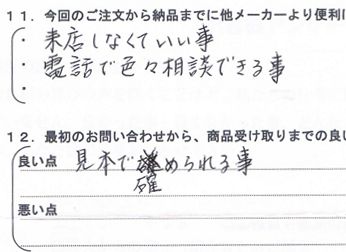 11．今回のご注文から納品までに他メーカーより便利に
・来店しなくていい事
・電話で色々相談できる事
・
12．最初のお問い合わせから、商品受け取りまでの良い
良い点 見本で確められる事
悪い点